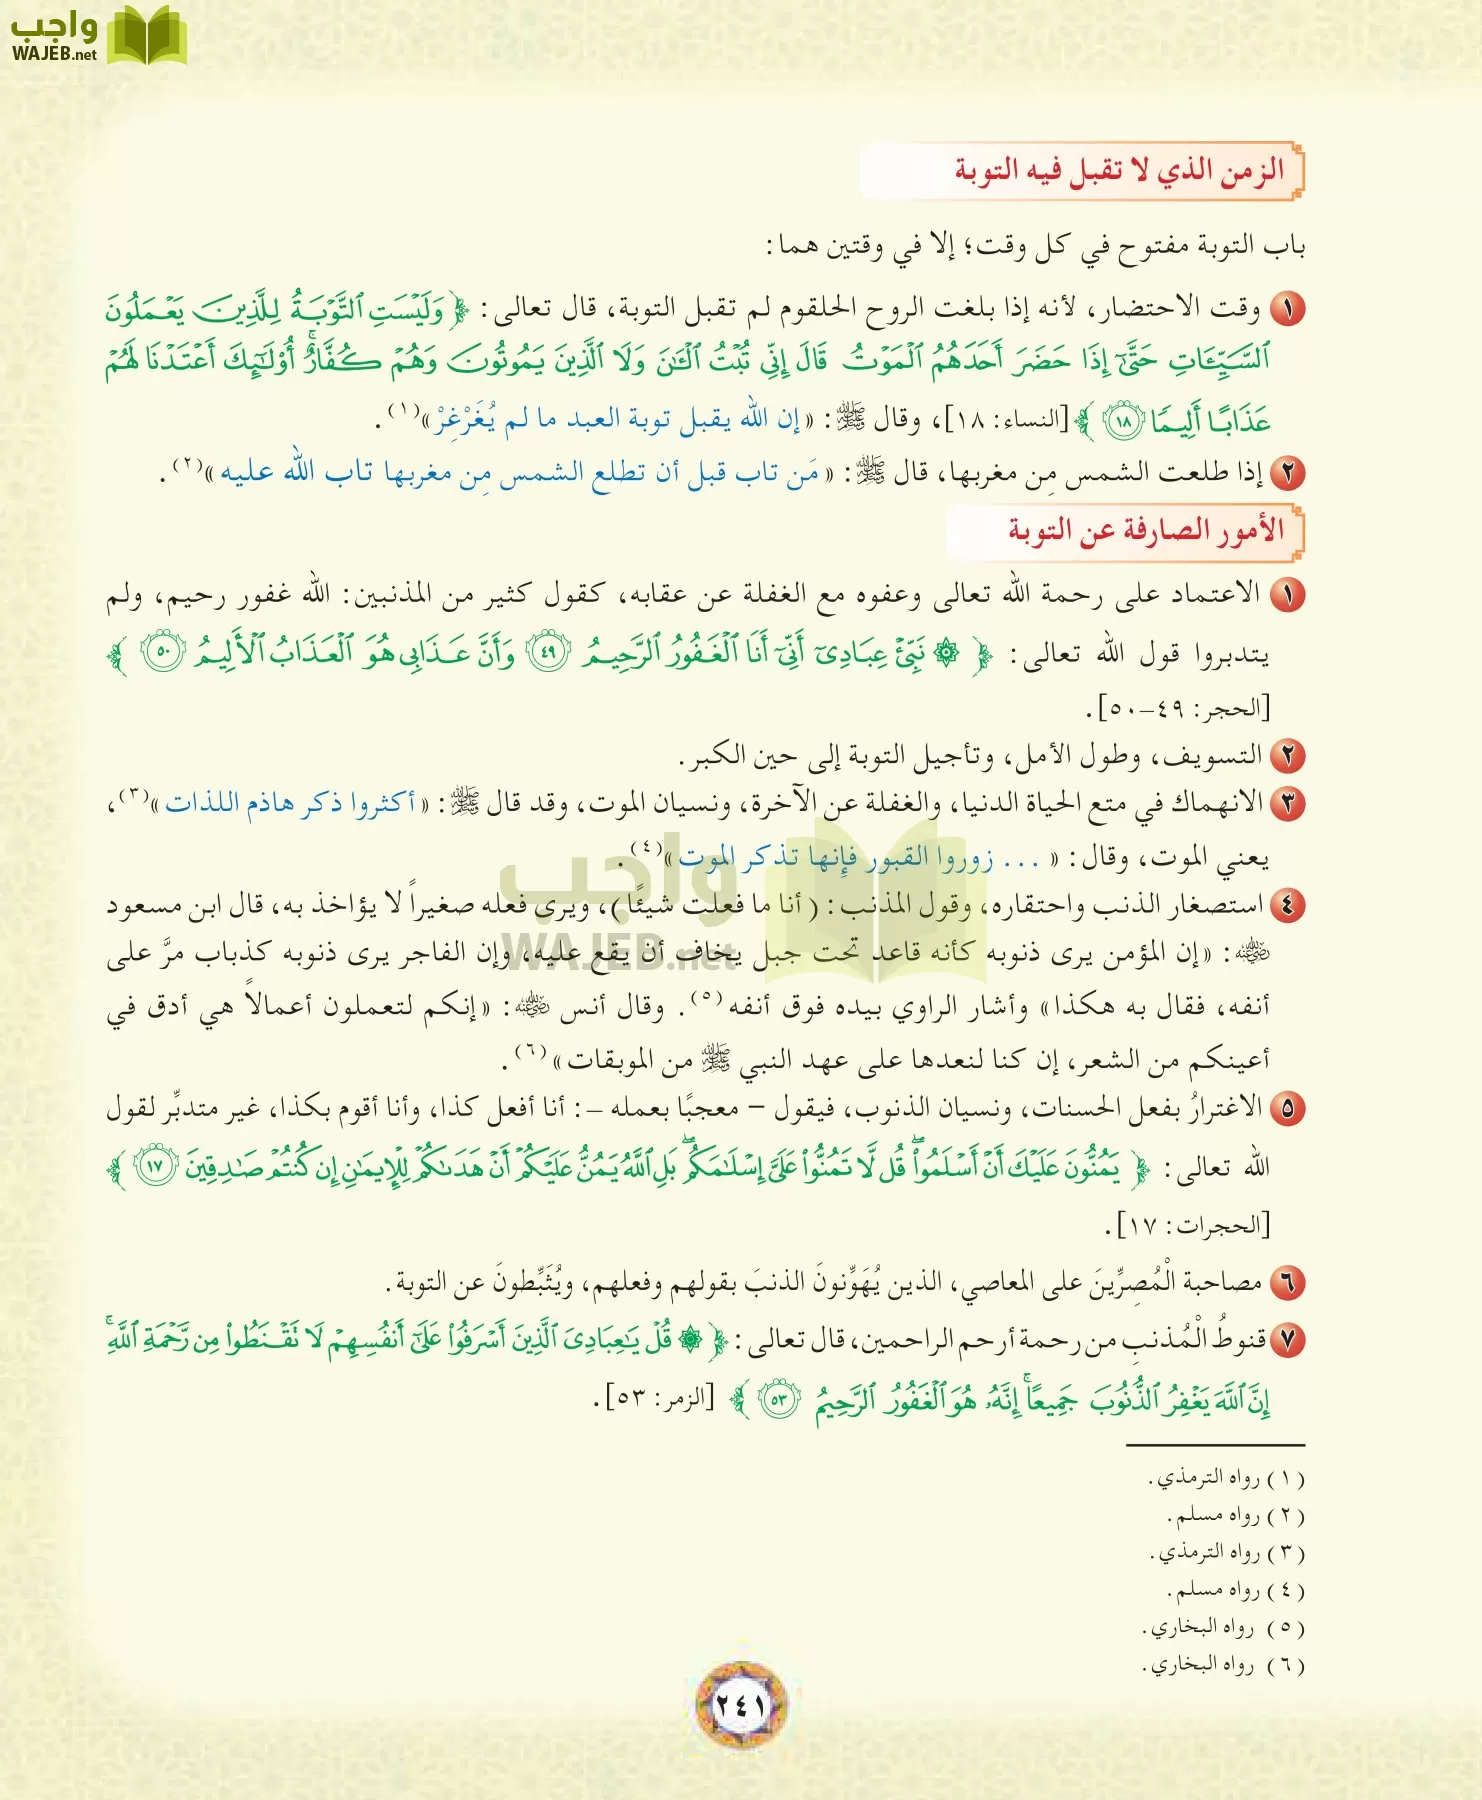 واجب
WAJEB.net
الزمن الذي لا تقبل فيه التوبة
باب التوبة مفتوح في كل وقت؛ إلا في وقتين هما:
١ وقت الاحتضار، لأنه إذا بلغت الروح الحلقوم لم تقبل التوبة، قال تعالى: ﴿ وَلَيْسَتِ التَّوْبَةُ لِلَّذِينَ يَعْمَلُونَ
السَّيِّئَاتِ حَتَّىٰ إِذَا حَضَرَ أَحَدَهُمُ الْمَوْتُ قَالَ إِنِّي تُبْتُ الْآنَ وَلَا الَّذِينَ يَمُوتُونَ وَهُمْ كُفَّارٌ ۚ أُولَٰئِكَ أَعْتَدْنَا لَهُمْ
عَذَابًا أَلِيمًا ١٨ ﴾ [النساء: ١٨]، وقال ﷺ: «إن الله يقبل توبة العبد ما لم يُغَرْغِرْ»(١).
٢ إذا طلعت الشمس مِن مغربها، قال ﷺ: «مَن تاب قبل أن تطلع الشمس مِن مغربها تاب الله عليه»(٢).
الأمور الصارفة عن التوبة
١ الاعتماد على رحمة الله تعالى وعفوه مع الغفلة عن عقابه، كقول كثير من المذنبين: الله غفور رحيم، ولم
يتدبروا قول الله تعالى: ﴿ ۞ نَبِّئْ عِبَادِي أَنِّي أَنَا الْغَفُورُ الرَّحِيمُ ٤٩ وَأَنَّ عَذَابِي هُوَ الْعَذَابُ الْأَلِيمُ ٥٠ ﴾
[الحجر: ٤٩–٥٠].
٢ التسويف، وطول الأمل، وتأجيل التوبة إلى حين الكبر.
٣ الانهماك في متع الحياة الدنيا، والغفلة عن الآخرة، ونسيان الموت، وقد قال ﷺ: «أكثروا ذكر هاذم اللذات»(٣)،
يعني الموت، وقال: «... زوروا القبور فإنها تذكر الموت»(٤).
٤ استصغار الذنب واحتقاره، وقول المذنب: (أنا ما فعلت شيئًا)، ويرى فعله صغيراً لا يؤاخذ به، قال ابن مسعود
رضي الله عنه: «إن المؤمن يرى ذنوبه كأنه قاعد تحت جبل يخاف أن يقع عليه، وإن الفاجر يرى ذنوبه كذباب مرَّ على
أنفه، فقال به هكذا» وأشار الراوي بيده فوق أنفه(٥). وقال أنس رضي الله عنه: «إنكم لتعملون أعمالاً هي أدق في
أعينكم من الشعر، إن كنا لنعدها على عهد النبي ﷺ من الموبقات»(٦).
٥ الاغترارُ بفعل الحسنات، ونسيان الذنوب، فيقول – معجبًا بعمله –: أنا أفعل كذا، وأنا أقوم بكذا، غير متدبِّر لقول
الله تعالى: ﴿ يَمُنُّونَ عَلَيْكَ أَنْ أَسْلَمُوا ۖ قُل لَّا تَمُنُّوا عَلَيَّ إِسْلَامَكُم ۖ بَلِ اللَّهُ يَمُنُّ عَلَيْكُمْ أَنْ هَدَاكُمْ لِلْإِيمَانِ إِن كُنتُمْ صَادِقِينَ ١٧ ﴾
[الحجرات: ١٧].
٦ مصاحبة الْمُصِرِّينَ على المعاصي، الذين يُهَوِّنونَ الذنبَ بقولهم وفعلهم، ويُثَبِّطونَ عن التوبة.
٧ قنوطُ الْمُذنبِ من رحمة أرحم الراحمين، قال تعالى: ﴿ ۞ قُلْ يَا عِبَادِيَ الَّذِينَ أَسْرَفُوا عَلَىٰ أَنفُسِهِمْ لَا تَقْنَطُوا مِن رَّحْمَةِ اللَّهِ ۚ
إِنَّ اللَّهَ يَغْفِرُ الذُّنُوبَ جَمِيعًا ۚ إِنَّهُ هُوَ الْغَفُورُ الرَّحِيمُ ٥٣ ﴾ [الزمر: ٥٣].
(١) رواه الترمذي.
(٢) رواه مسلم.
(٣) رواه الترمذي.
(٤) رواه مسلم.
(٥) رواه البخاري.
(٦) رواه البخاري.
٢٤١
واجب
WAJEB.net